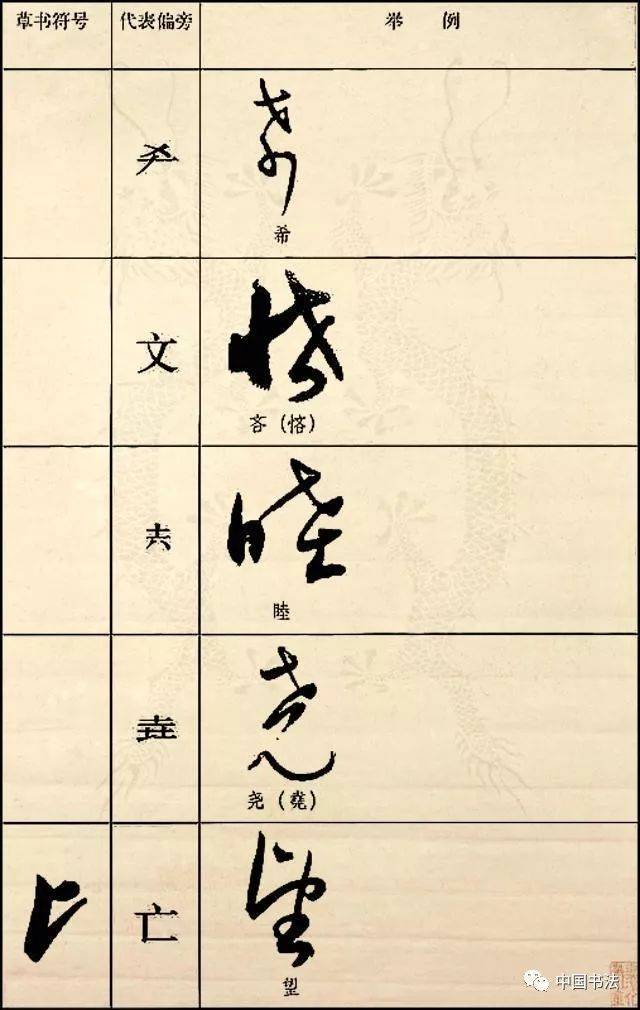 草书符号 代表偏旁 举例
希
文
吝（悋）
睦
尧（堯）
亡
望
中国书法